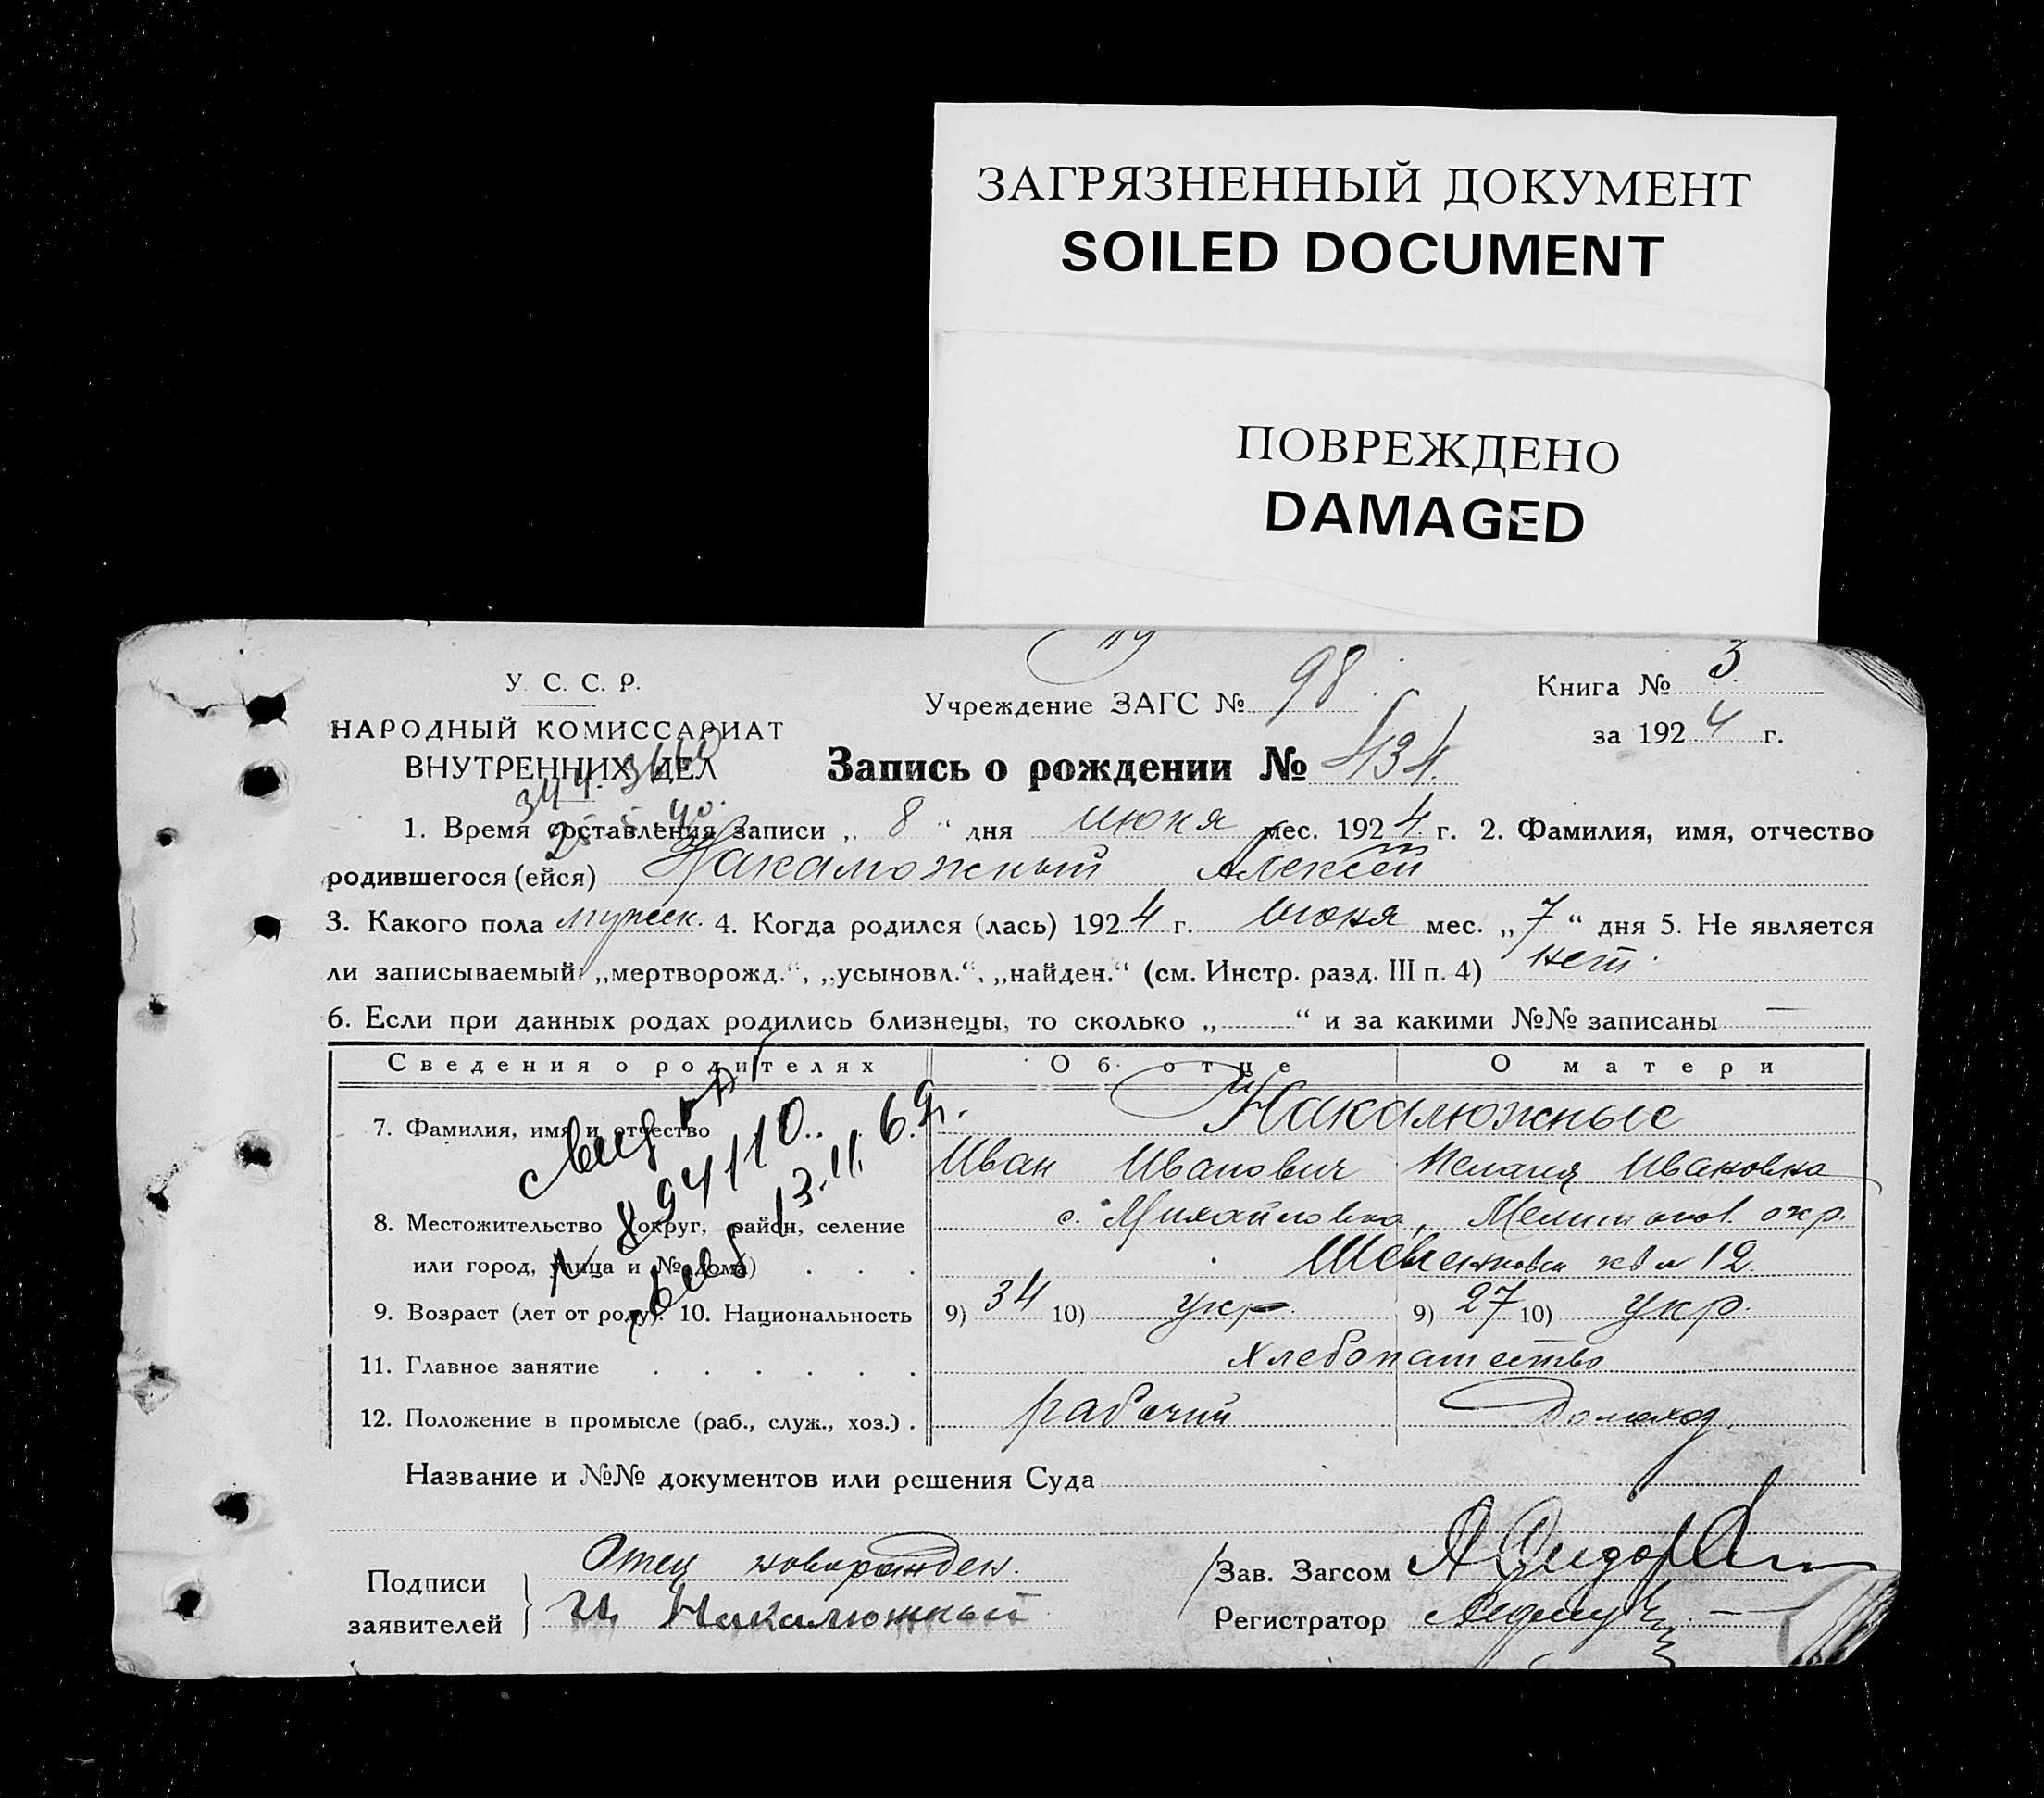 ЗАГРЯЗНЕННЫЙ ДОКУМЕНТ
SOILED DOCUMENT
ПОВРЕЖДЕНО
DAMAGED
У. С. С. Р.
НАРОДНЫЙ КОМИССАРИАТ
ВНУТРЕННИХ ДЕЛ
Учреждение ЗАГС № 98
Книга № 3
за 1924 г.
Запись о рождении № 434
1. Время составления записи „ 8 “ дня июня мес. 1924 г. 2. Фамилия, имя, отчество
родившегося (ейся) Накалюжный Алексей
3. Какого пола мужск. 4. Когда родился (лась) 1924 г. июня мес. „7“ дня 5. Не является
ли записываемый: „мертворожд.“, „усыновл.“, „найден.“ (см. Инстр. разд. III п. 4) нет.
6. Если при данных родах родились близнецы, то сколько „ “ и за какими №№ записаны —
Сведения о родителях Об отце О матери
7. Фамилия, имя и отчество Накалюжные
Иван Иванович Мелания Ивановна
8. Местожительство (округ, район, селение с. Михайловка, окр.
или город, улица и № дома) № 12
9. Возраст (лет от роду). 10. Национальность 9) 34 10) укр. 9) 27 10) укр.
11. Главное занятие хлебопашество
12. Положение в промысле (раб., служ., хоз.) рабочий Домохоз.
№ 894110
13.11.69г.
Название и №№ документов или решения Суда
Подписи заявителей Отец новорожден.
И Накалюжный
Зав. Загсом
Регистратор